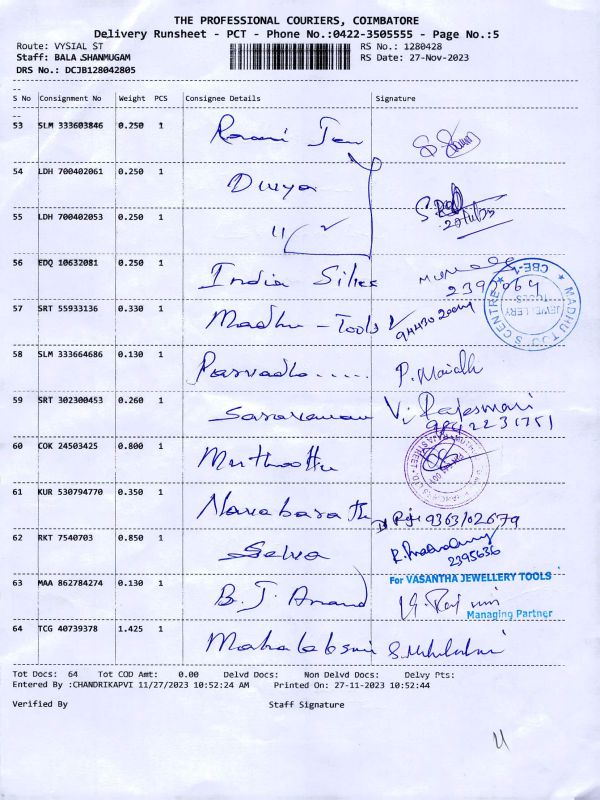 THE PROFESSIONAL COURIERS, COIMBATORE
Delivery Runsheet - PCT - Phone No.:0422-3505555 - Page No.:5
Route: VYSIAL ST RS No.: 1280428
Staff: BALA.SHANMUGAM RS Date: 27-Nov-2023
DRS No.: DCJB128042805
S No Consignment No Weight PCS Consignee Details Signature
53 SLM 333603846 0.250 1
54 LDH 700402061 0.250 1 Divya
55 LDH 700402053 0.250 1 "
56 EDQ 10632081 0.250 1 India Silks
57 SRT 55933136 0.330 1 Madhu - Tools
MADHU TOOLS CENTRE CBE-1
JEWELLERY TOOLS
58 SLM 333664686 0.130 1
59 SRT 302300453 0.260 1 Saravanan V. Rajeswari
9842231751
60 COK 24503425 0.800 1
61 KUR 530794770 0.350 1 9363102679
62 RKT 7540703 0.850 1 Selva
2395636
For VASANTHA JEWELLERY TOOLS
63 MAA 862784274 0.130 1 B. J. Anand
Managing Partner
64 TCG 40739378 1.425 1 Mahalabsmi
Tot Docs: 64 Tot COD Amt: 0.00 Delvd Docs: Non Delvd Docs: Delvy Pts:
Entered By :CHANDRIKAPVI 11/27/2023 10:52:24 AM Printed On: 27-11-2023 10:52:44
Verified By Staff Signature